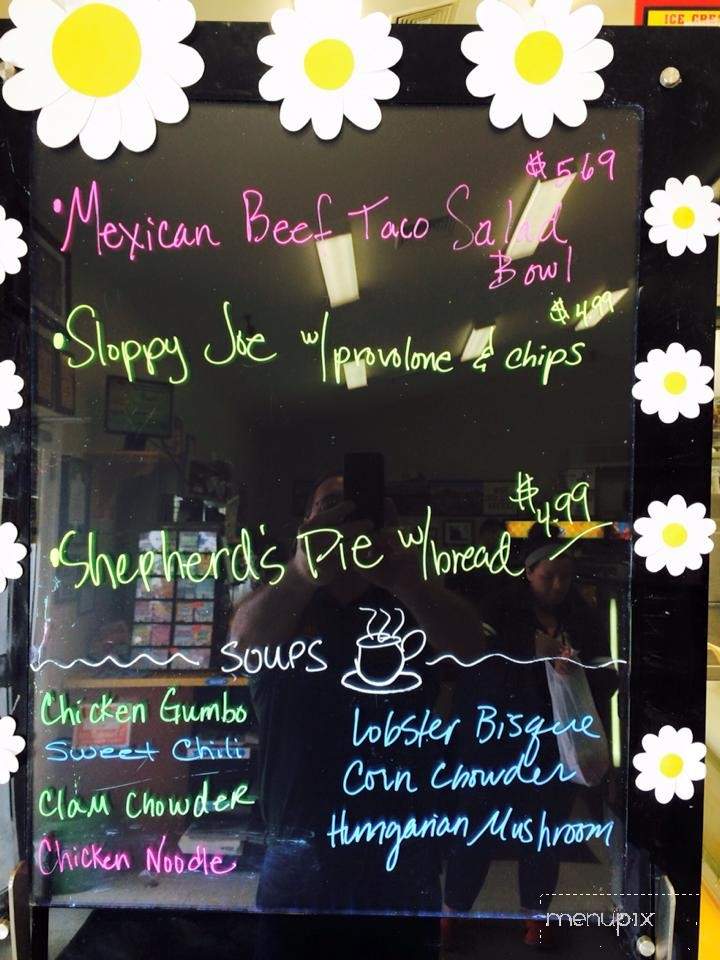 ICE CRE
$5.69
• Mexican Beef Taco Salad
Bowl
$4.99
• Sloppy Joe w/ provolone & chips
$4.99
• Shepherd's Pie w/ bread
SOUPS
Chicken Gumbo
Sweet Chili
Clam Chowder
Chicken Noodle
Lobster Bisque
Corn Chowder
Hungarian Mushroom
menupix